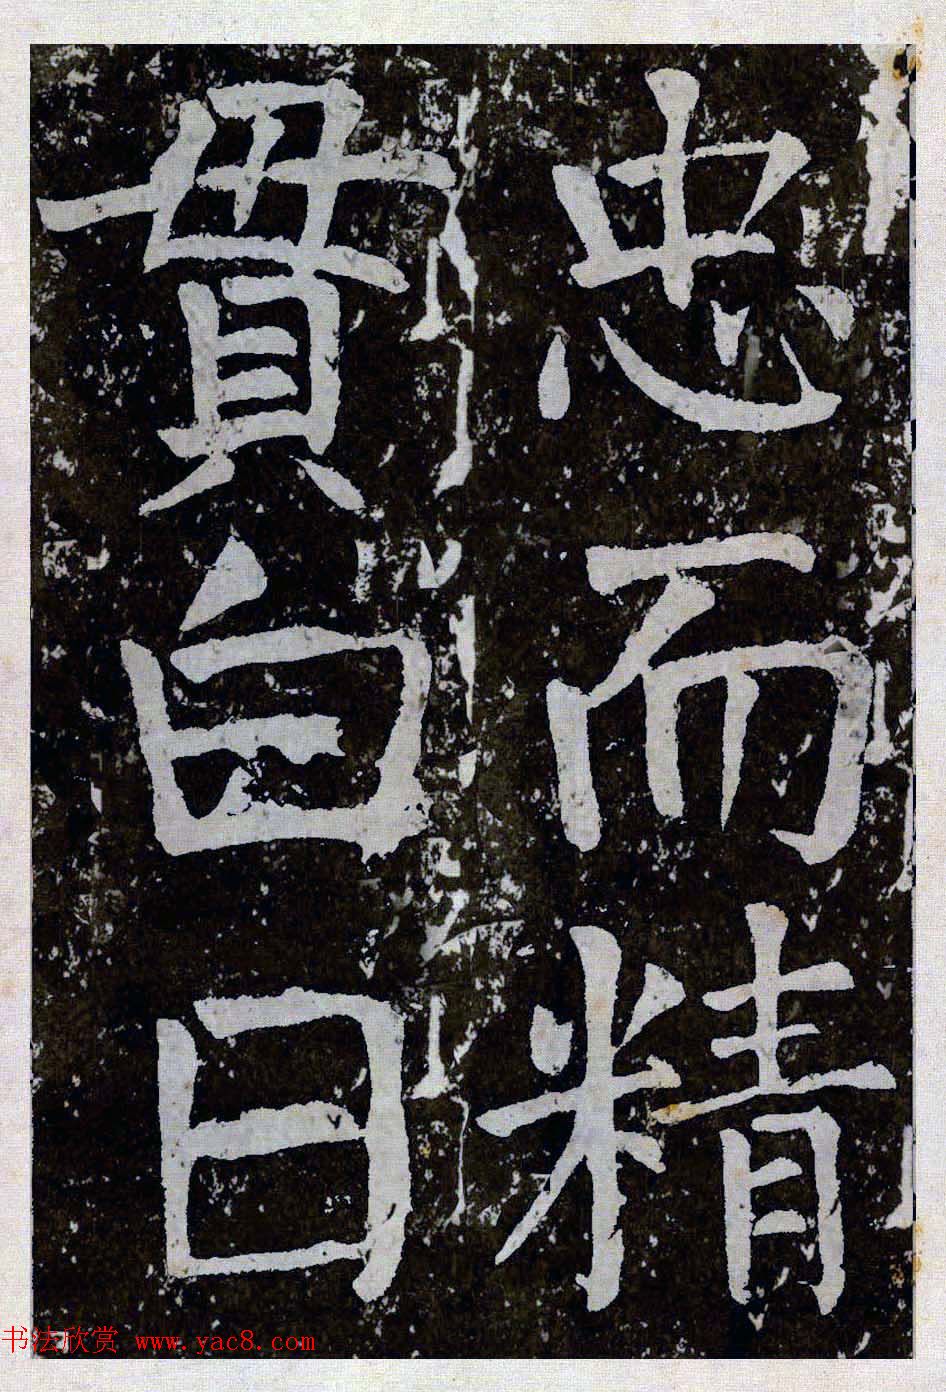 忠而精
貫白日
书法欣赏 www.yac8.com